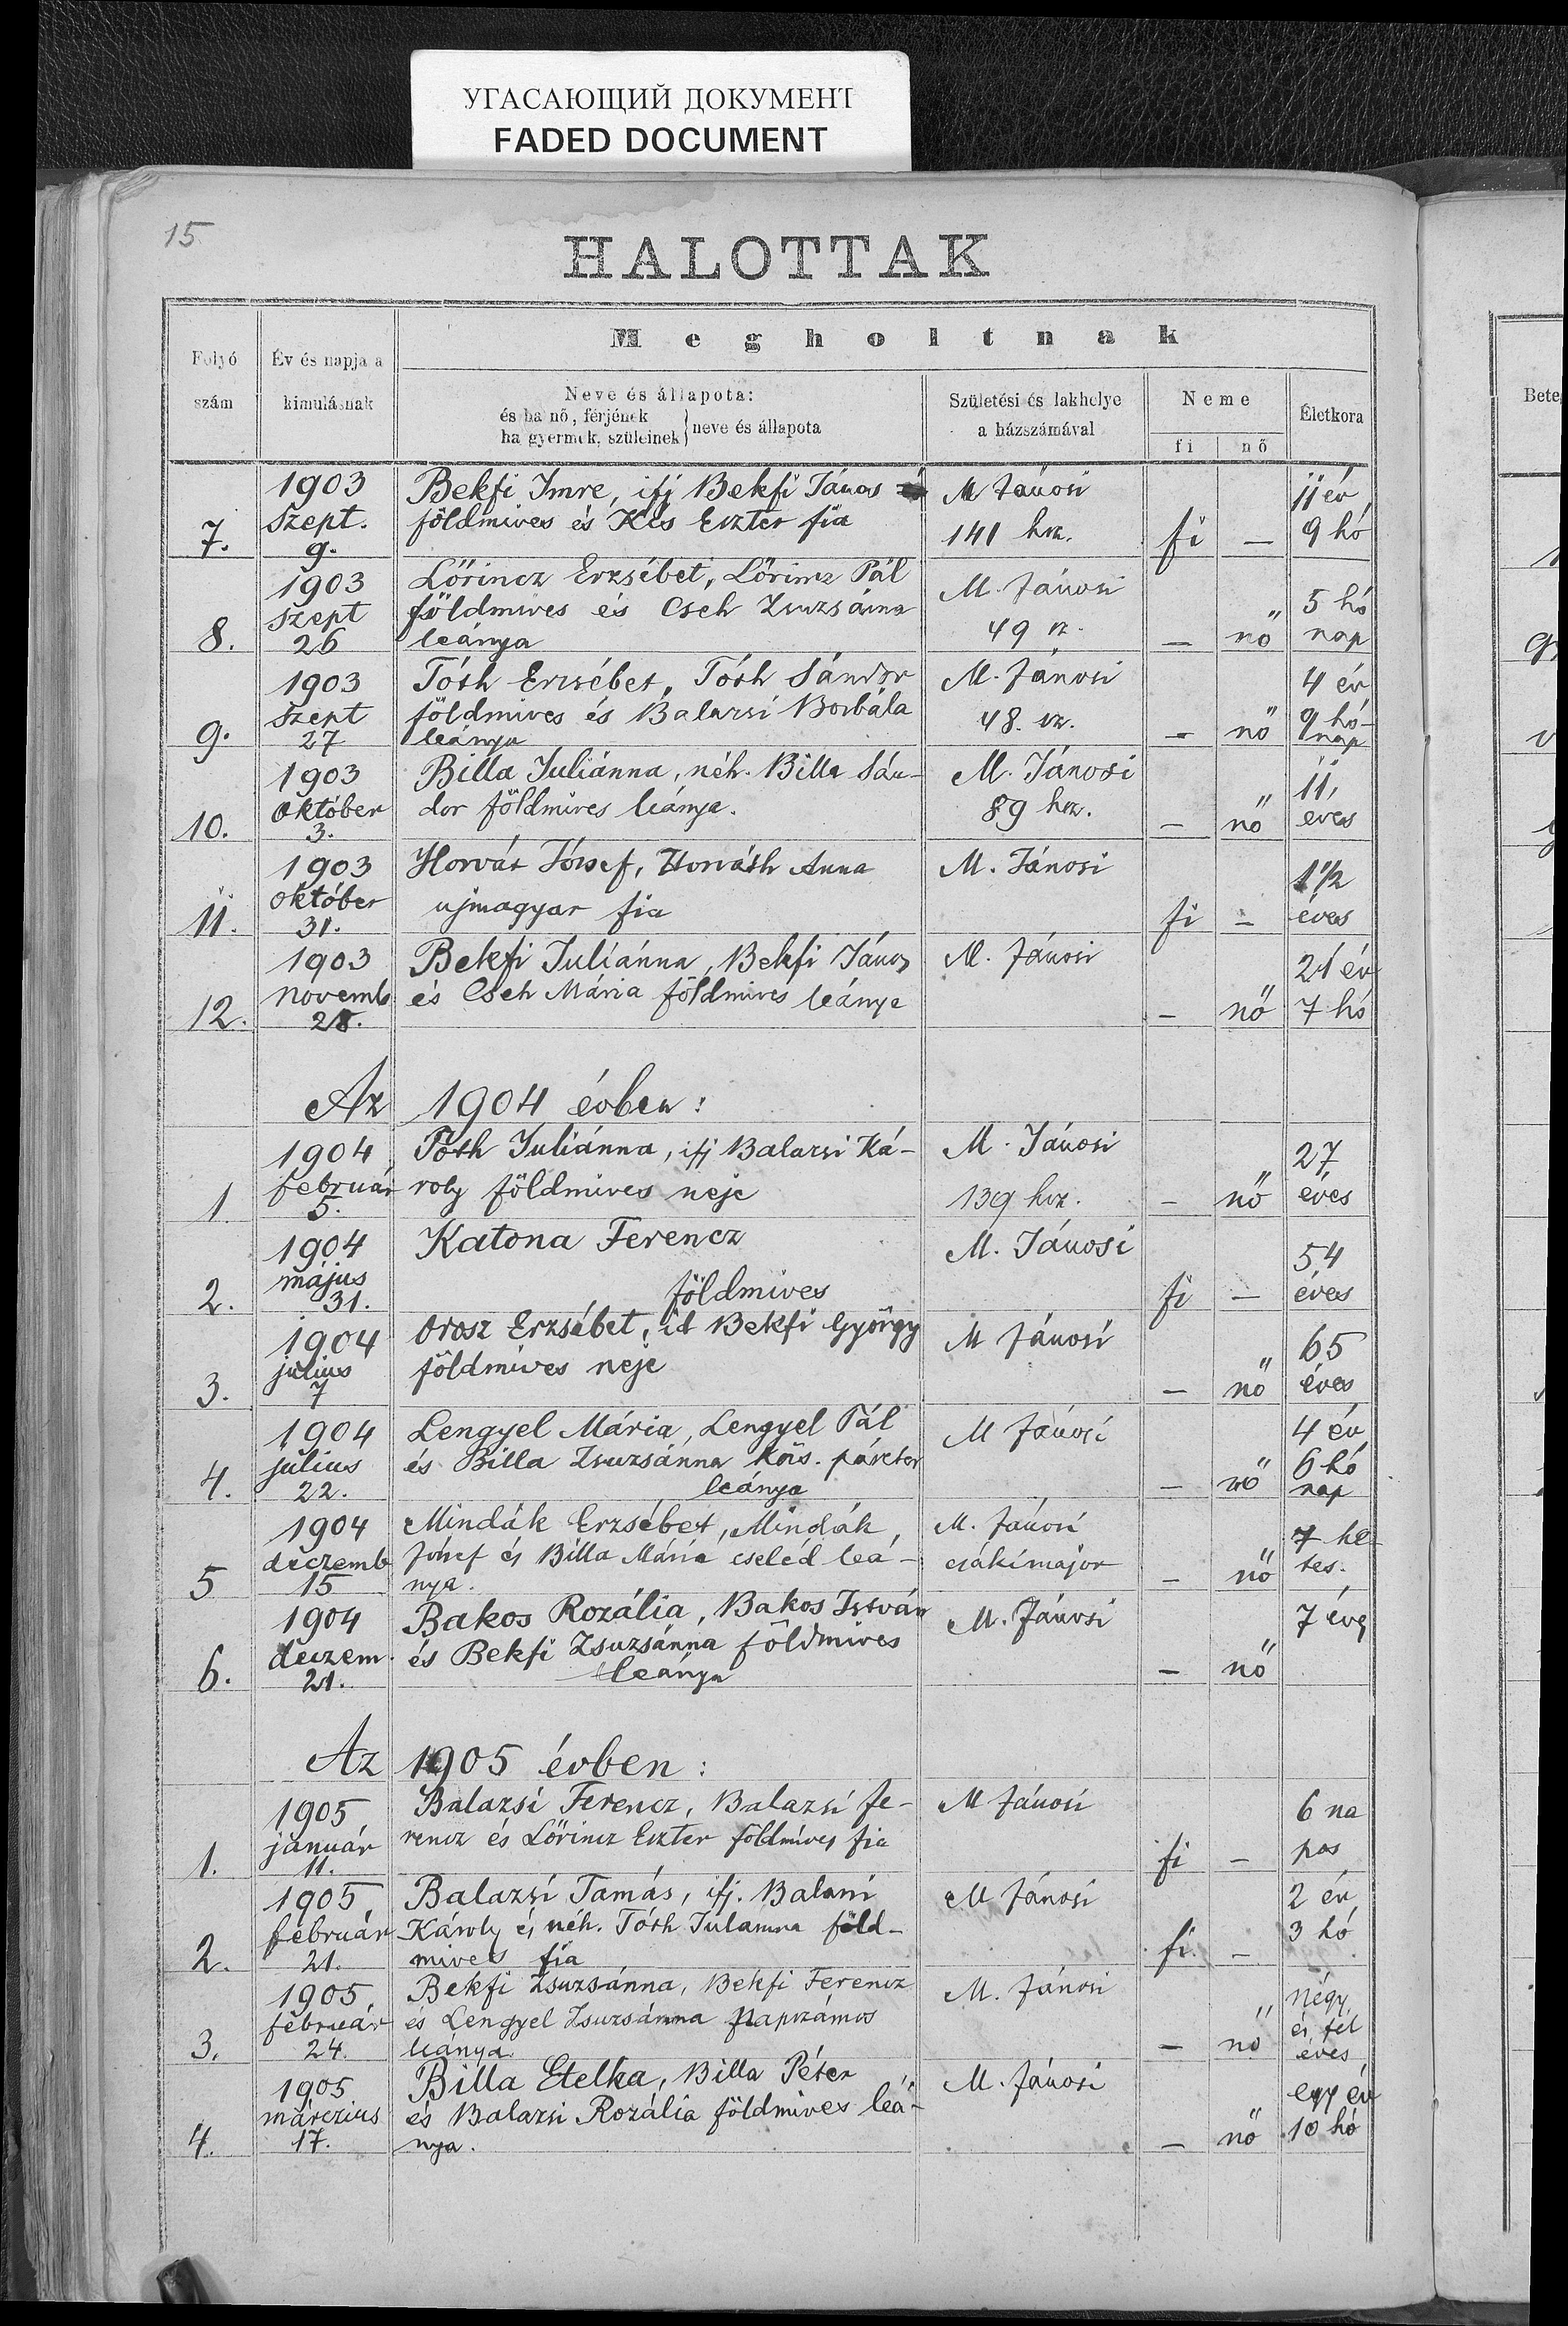 УГАСАЮЩИЙ ДОКУМЕНТ
FADED DOCUMENT
15
HALOTTAK
Folyó szám
Év és napja a kimulásnak
Megholtnak
Neve és állapota:
és ha nő, férjének
ha gyermek, szüleinek } neve és állapota
Születési és lakhelye
a házszámával
Neme
fi nő
Életkora
Bete
1903 Bekfi Imre, ifj Bekfi János M Jánosi 11 év
Szept. földmives és Kis Eszter fia 141 hsz. 9 hó
7. 9. fi –
1903 Lőrincz Erzsébet, Lőrincz Pál M. Jánosi
szept földmives és Cseh Zsuzsánna 49 sz. 5 hó
8. 26 leánya – nő nap
1903 Tóth Erzsébet, Tóth Sándor M. Jánosi 4 év
szept földmives és Balazsi Borbála 48. sz. 9 hó-
9. 27 leánya – nő nap
1903 Billa Juliánna, néh. Billa Sán- M. Jánosi 11,
október dor földmives leánya. 89 hsz. éves
10. 3. – nő
1903 Horvát József, Horváth Anna M. Jánosi 1 1/2
október ujmagyar fia éves
11. 31. fi –
1903 Bekfi Juliánna, Bekfi János M. Jánosi 21 év
novemb és Cseh Mária földmives leánya 7 hó
12. 28. – nő
Az 1904 évben:
1904 Tóth Juliánna, ifj Balazsi Ká- M. Jánosi 27
február roly földmives neje 139 hsz. éves
1. 5. – nő
1904 Katona Ferencz M. Jánosi 54
május földmives éves
2. 31. fi –
1904 Orosz Erzsébet, id Bekfi György M Jánosi 65
julius földmives neje éves
3. 7 – nő
1904 Lengyel Mária, Lengyel Pál M Jánosi 4 év
julius és Billa Zsuzsánna köz. pásztor 6 hó
4. 22. leánya – nő nap
1904 Mindák Erzsébet, Mindák M. Jánosi 7 he-
deczemb József és Billa Mária cseléd leá- csákimajor tes.
5 15 nya. – nő
1904 Bakos Rozália, Bakos István M. Jánosi 7 éves
deczem. és Bekfi Zsuzsánna földmives
6. 21. leánya – nő
Az 1905 évben:
1905 Balazsi Ferencz, Balazsi Fe- M Jánosi 6 na
január rencz és Lőrincz Eszter földmives fia pos
1. 11. fi –
1905 Balazsi Tamás, ifj. Balazsi M Jánosi 2 év
február Károly és néh. Tóth Julánna föld- 3 hó
2. 21. mives fia fi. –
1905 Bekfi Zsuzsánna, Bekfi Ferencz M. Jánosi négy
február és Lengyel Zsuzsánna napszámos és fél
3. 24. leánya. – nő éves
1905 Billa Etelka, Billa Péter M. Jánosi egy év
márczius és Balazsi Rozália földmives leá- 10 hó
4. 17. nya. – nő